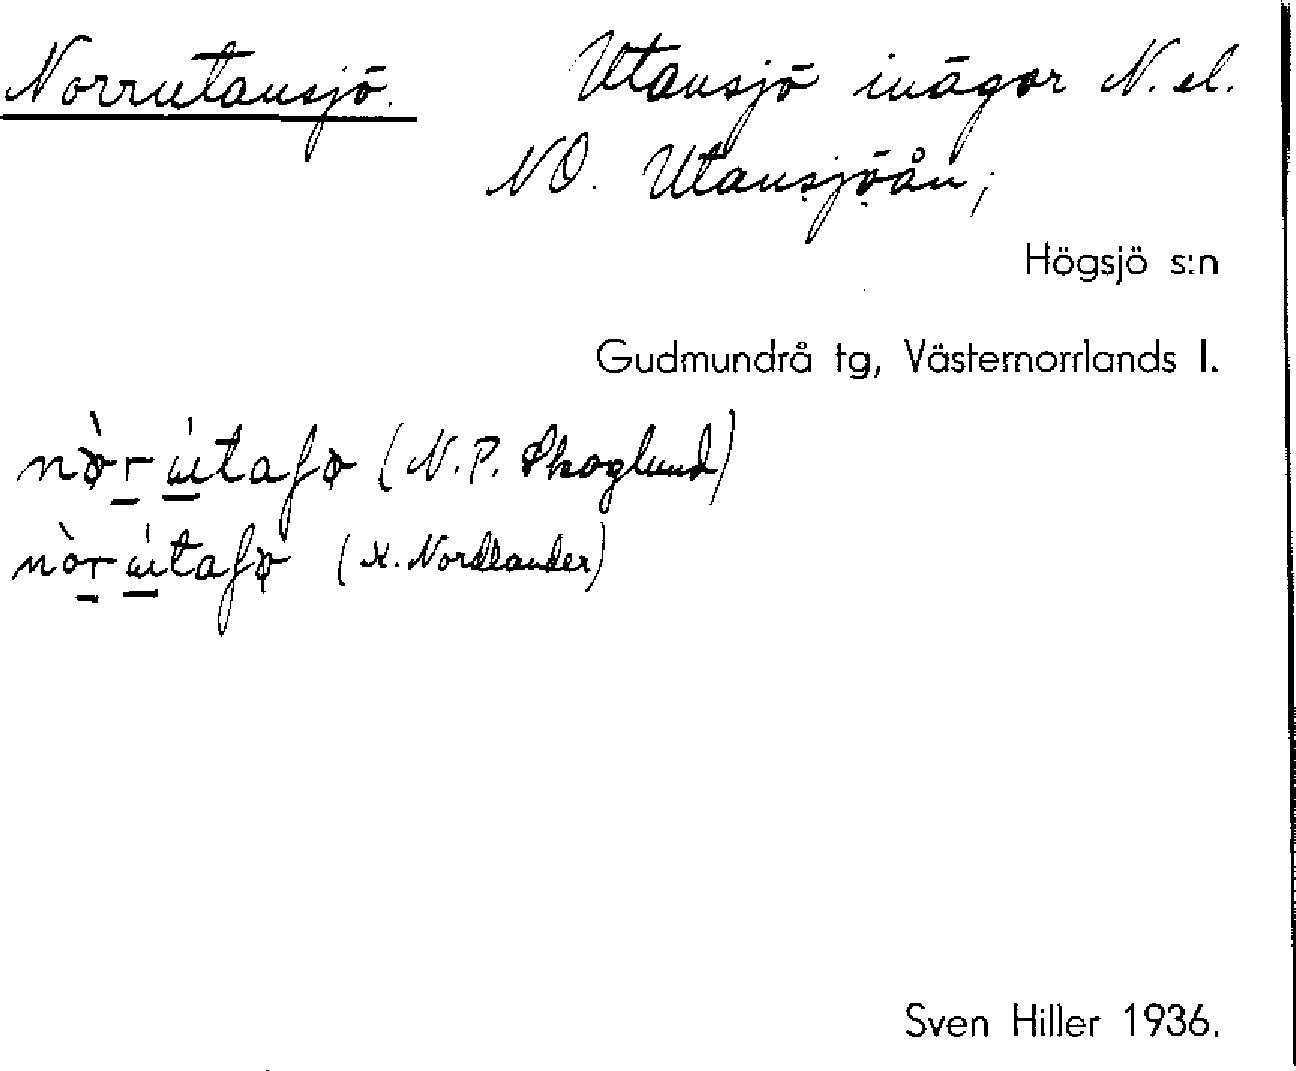 Norrutansjö. Utansjö inägor N. el.
NO. Utansjöån;
Högsjö s:n
Gudmundrå tg, Västernorrlands l.
(N. P. Skoglund)
(K. Nordlander)
Sven Hiller 1936.